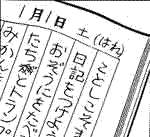 1月1日 土(はれ)
ことしこそ
日記をつけよう
おぞうにをた
たち とトランプ
みかん